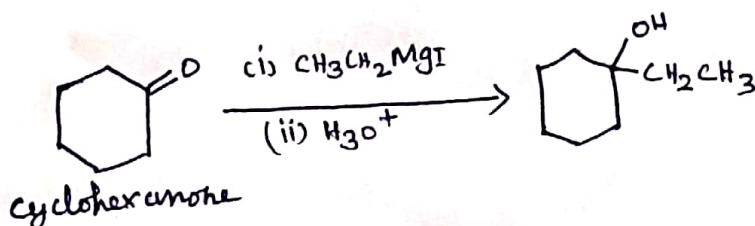 O
(i) CH3CH2MgI
(ii) H3O+
OH
CH2CH3
cyclohexanone